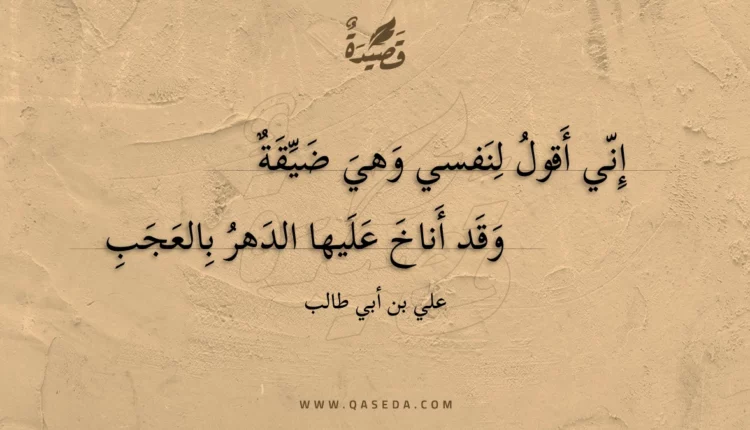 قَصِيْدَةٌ
إِنّي أَقولُ لِنَفسي وَهيَ ضَيِّقَةٌ
وَقَد أَناخَ عَلَيها الدَهرُ بِالعَجَبِ
علي بن أبي طالب
WWW.QASEDA.COM